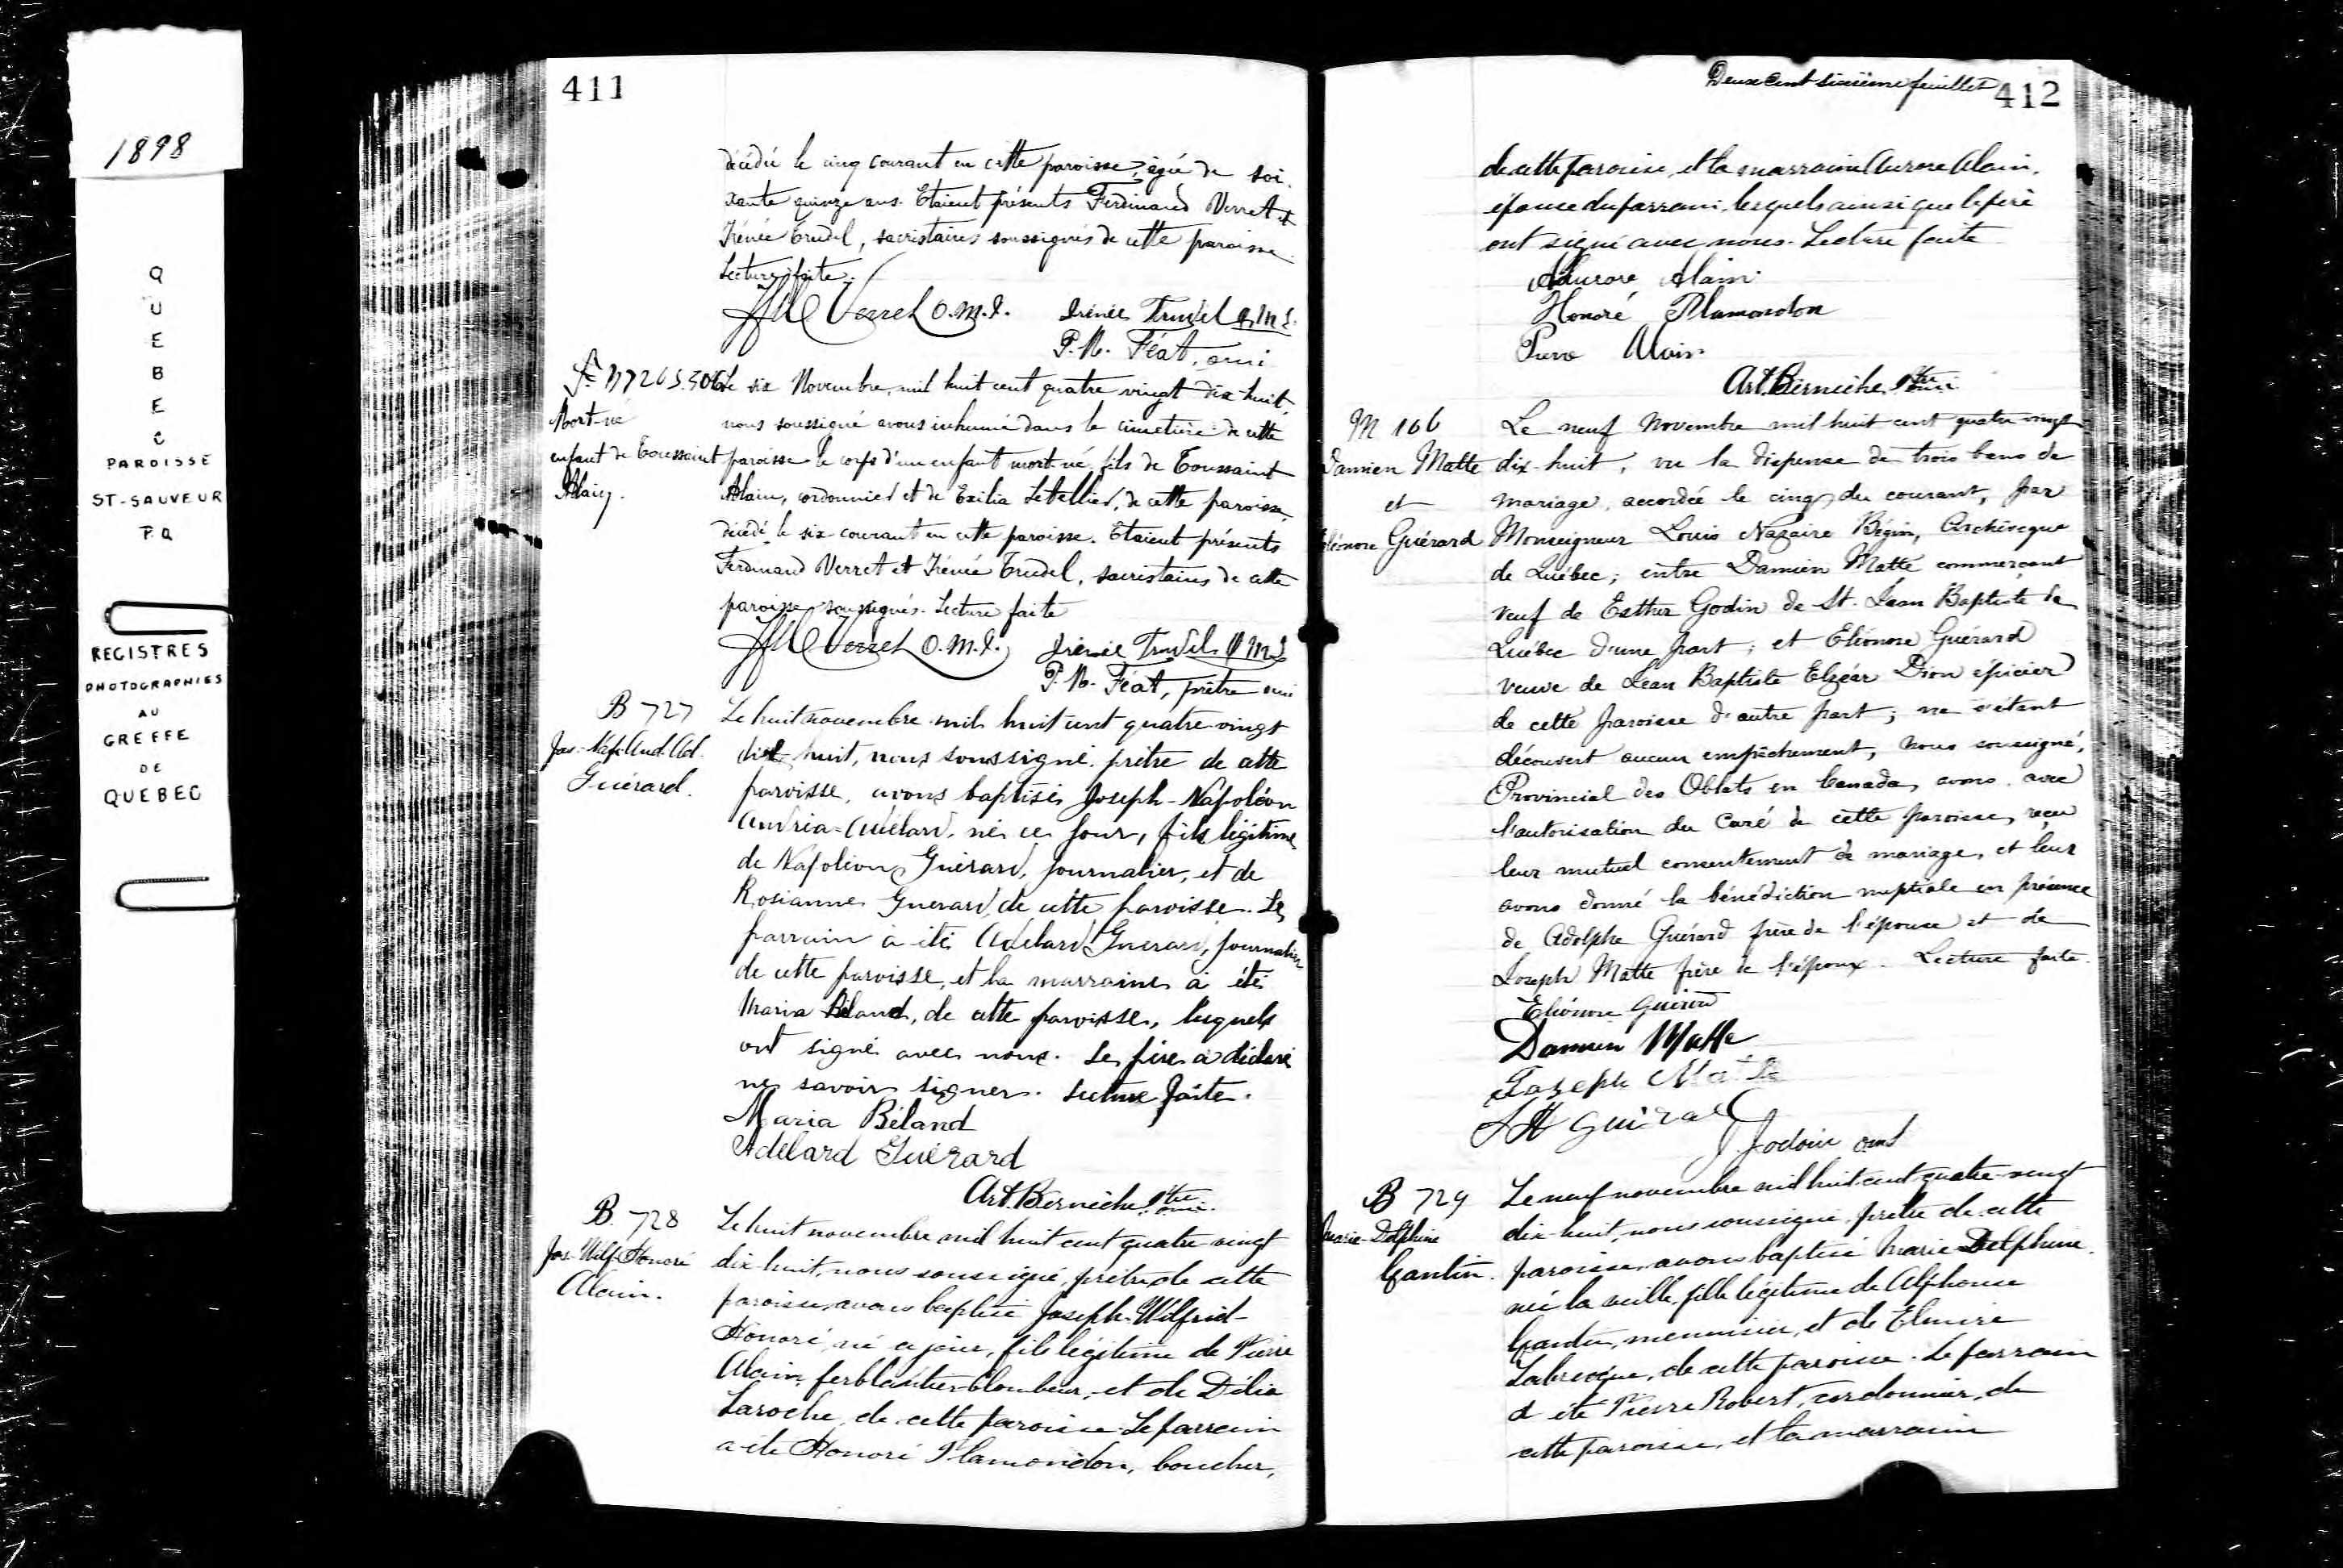 1898
QUEBEC
PAROISSE
ST-SAUVEUR
P.Q
REGISTRES
PHOTOGRAPHIES
AU
GREFFE
DE
QUEBEC
411
décédée le cinq courant en cette paroisse, agée de soi-
xante quinze ans. Etaient présents Ferdinand Verret et
Irénée Trudel, sacristaires soussignés de cette paroisse
Lecture faite.
Verret O.M.I. Irénée Trudel
P.M. Féat, omi
Mort-né
enfant de Toussaint
Alain.
Le six Novembre, mil huit cent quatre vingt dix huit,
nous soussigné avons inhumé dans le cimetière de cette
paroisse le corps d'un enfant mort-né, fils de Toussaint
Alain, cordonnier et de Exilia Letellier, de cette paroisse,
décédé le six courant en cette paroisse. Etaient présents
Ferdinand Verret et Irénée Trudel, sacristains de cette
paroisse soussignés. Lecture faite
Verret O.M.I. Irénée Trudel
P.M. Féat, prêtre omi
B 727
Jos-Nap. And. Ad.
Guérard.
Le huit novembre mil huit cent quatre-vingt
dix huit, nous soussigné prêtre de cette
paroisse, avons baptisé Joseph-Napoléon
Andria-Adélard, né ce jour, fils légitime
de Napoléon Guérard, journalier, et de
Rosianne Guerard, de cette paroisse. Le
parrain à été Adélard Guerard, journalier
de cette paroisse, et la marraine à été
Maria Béland, de cette paroisse, lesquels
ont signé avec nous. Le père a déclaré
ne savoir signer. Lecture faite.
Maria Béland
Adélard Guérard
Art. Bernèche, Ptre omi.
B. 728
Jos-Wilf-Honoré
Alain.
Le huit novembre mil huit cent quatre-vingt
dix-huit, nous soussigné, prêtre de cette
paroisse, avons baptisé Joseph-Wilfrid-
Honoré, né ce jour, fils légitime de Pierre
Alain, ferblantier-plombeur, et de Délia
Laroche, de cette paroisse. Le parrain
a été Honoré Plamondon, boucher,
Deux Cent sixième feuillet 412
de cette paroisse, et la marraine Aurore Alain,
épouse du parrain, lesquels ainsi que le père
ont signé avec nous. Lecture faite
Aurore Alain
Honoré Plamondon
Pierre Alain
Art. Bernèche, Ptre omi
M 166
Damien Matte
et
Eléonore Guérard
Le neuf Novembre mil huit cent quatre vingt
dix-huit, vu la dispense de trois bans de
mariage, accordée le cinq du courant, par
Monseigneur Louis Nazaire Bégin, Archévêque
de Québec; entre Damien Matte commerçant
veuf de Esther Godin de St. Jean Baptiste de
Québec d'une part; et Eléonore Guérard
veuve de Jean Baptiste Elzéar Dion épicier
de cette paroisse d'autre part; ne s'étant
découvert aucun empêchement, Nous soussigné,
Provincial des Oblats en Canada, avons, avec
l'autorisation du Curé de cette paroisse, reçu
leur mutuel consentement de mariage, et leur
avons donné la bénédiction nuptiale en présence
de Adolphe Guérard frère de l'épouse et de
Joseph Matte frère de l'époux. Lecture faite.
Eléonore Guérard
Damien Matte
Joseph Matte
Guérard
J Jodoin omi
B 729
Marie-Delphine
Gantin.
Le neuf novembre mil huit cent quatre-vingt
dix-huit, nous soussigné, prêtre de cette
paroisse, avons baptisé Marie Delphine,
née la veille, fille légitime de Alphonse
Gantin, menuisier, et de Elmire
Labrecque, de cette paroisse. Le parrain
a été Pierre Robert, cordonnier, de
cette paroisse, et la marraine